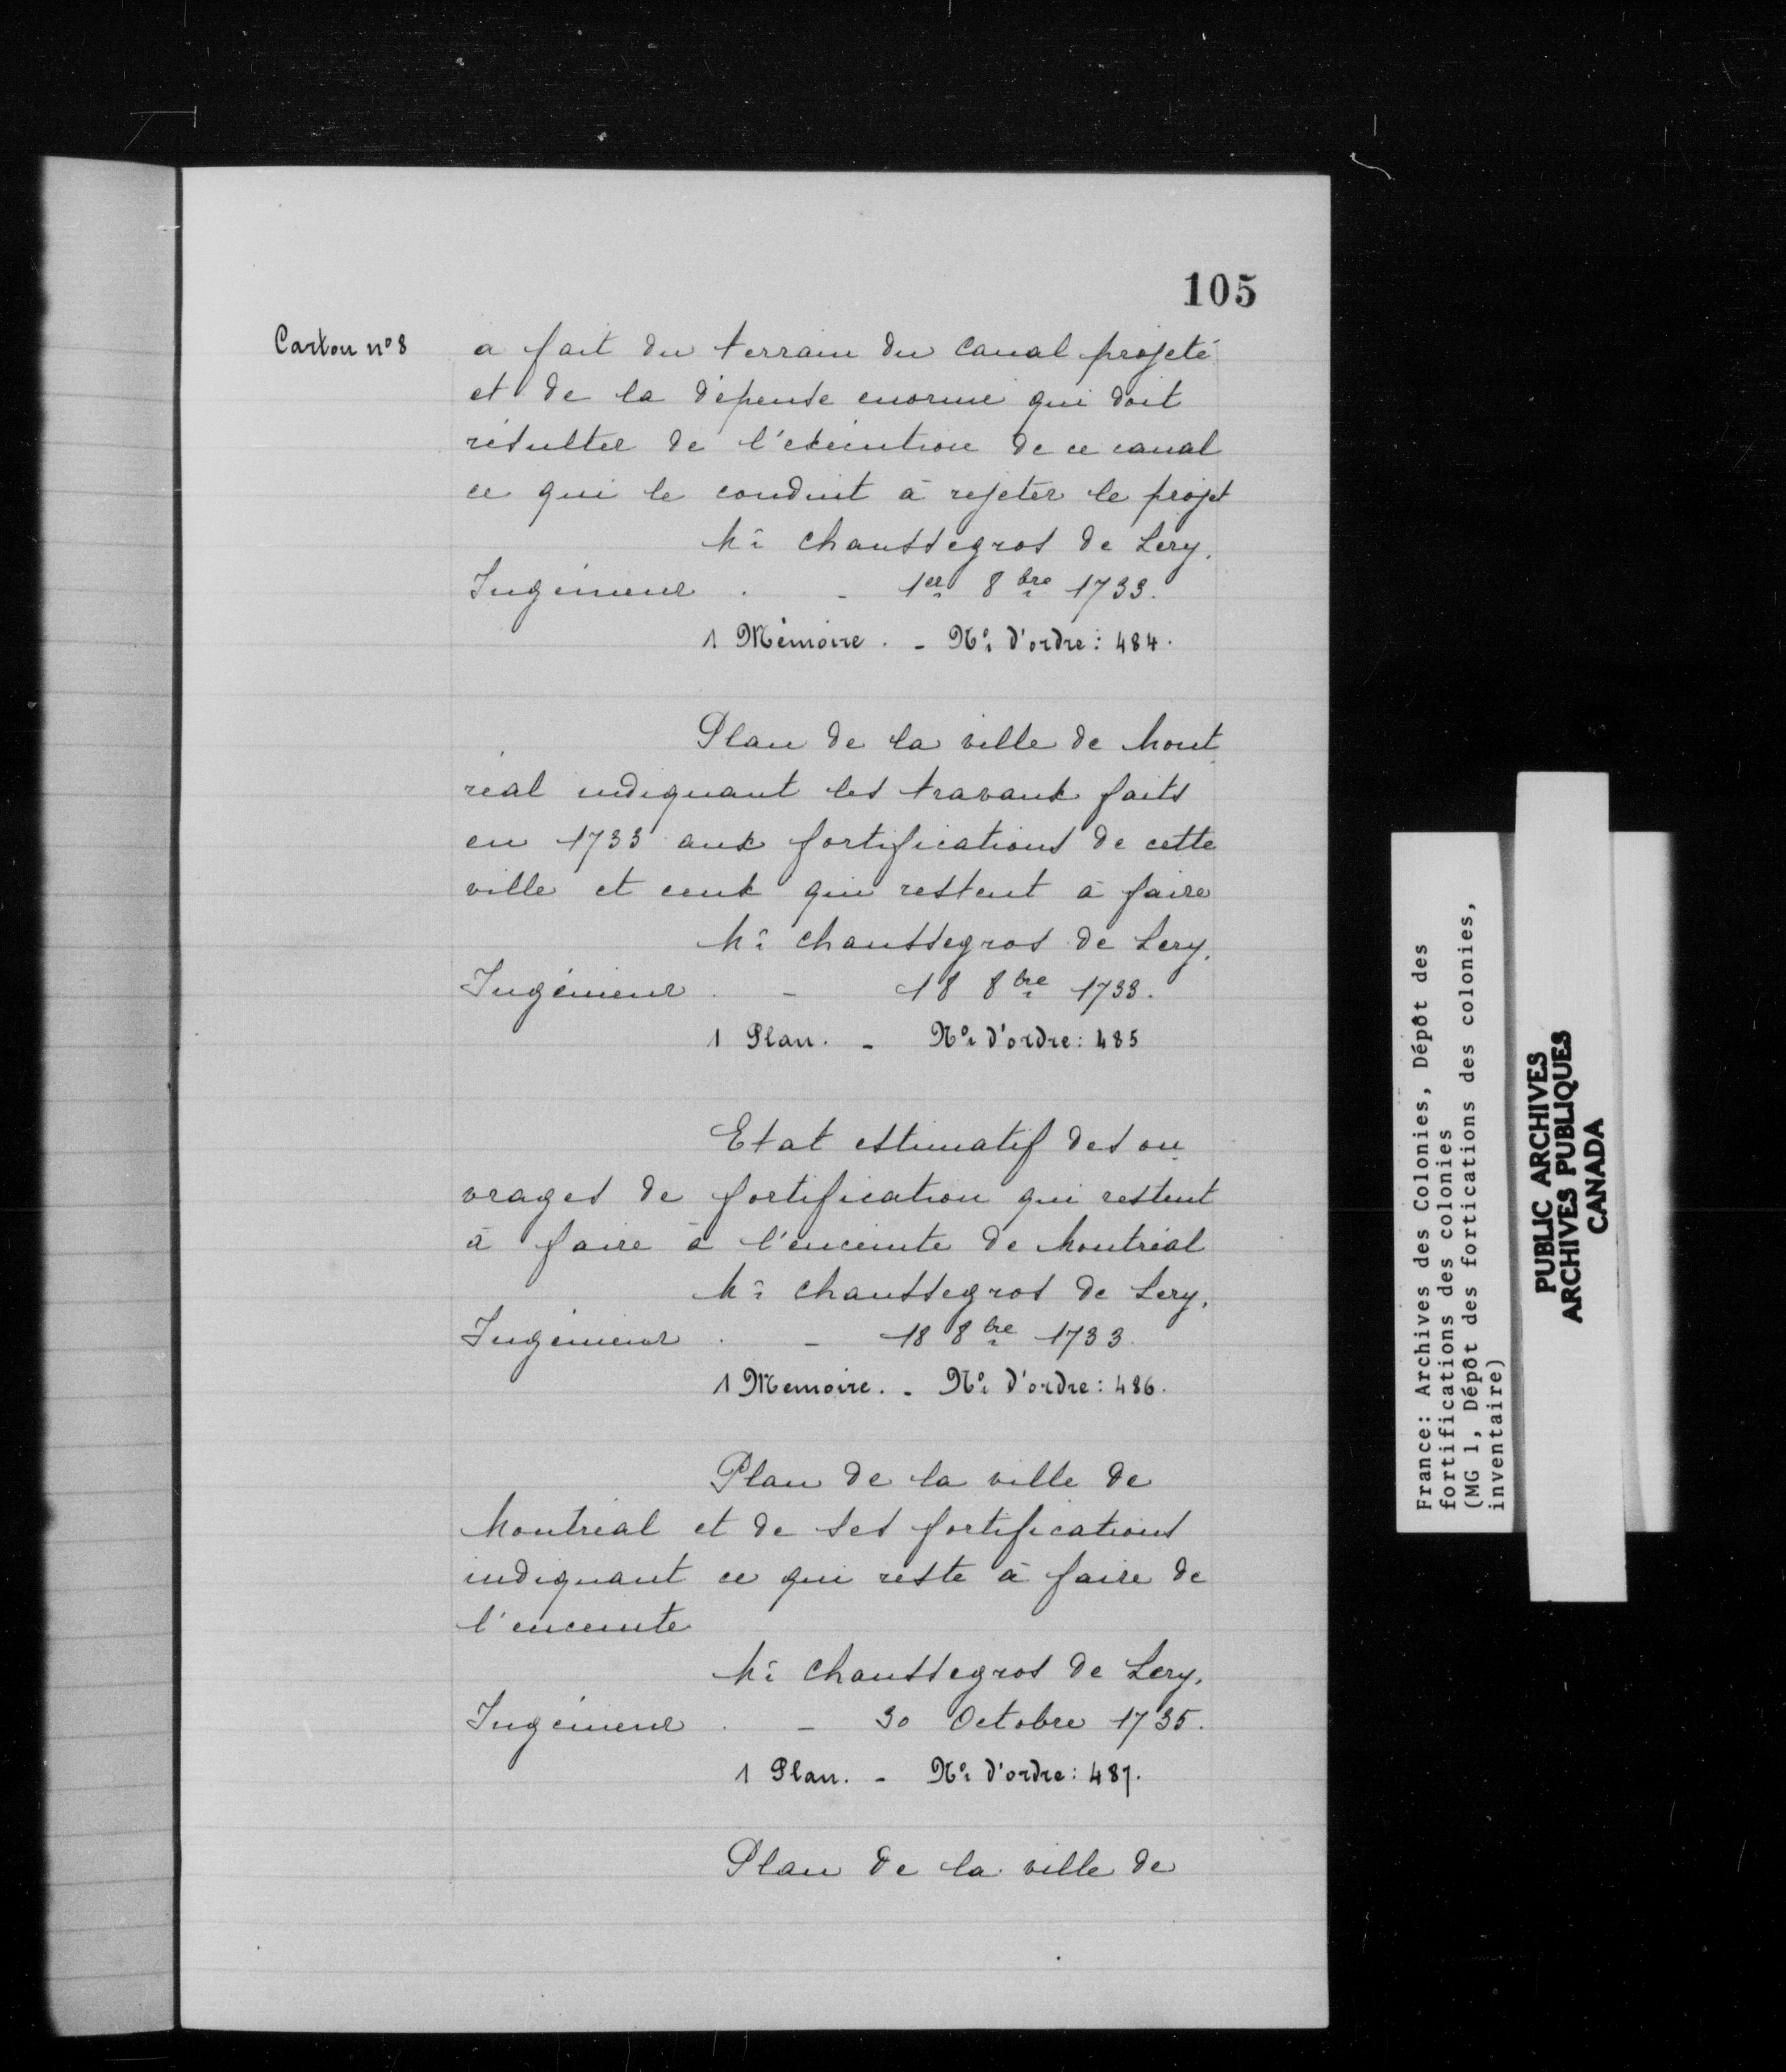 105
Carton n° 8
a fait du terrain du canal projeté
et de la dépense enorme qui doit
résulter de l'exécution de ce canal
ce qui le conduit à rejeter le projet
Mr Chaussegros de Lery,
Ingénieur . - 1er 8bre 1733.
1 Mémoire. - No d'ordre : 484.
Plan de la ville de Mont
réal indiquant les travaux faits
en 1733 aux fortifications de cette
ville et ceux qui restent à faire
Mr Chaussegros de Lery,
Ingénieur . - 18 8bre 1733.
1 Plan. - No d'ordre : 485
Etat estimatif des ou
vrages de fortification qui restent
à faire à l'enceinte de Montréal
Mr Chaussegros de Lery,
Ingénieur . - 18 8bre 1733.
1 Memoire. - No d'ordre : 486.
Plan de la ville de
Montréal et de ses fortifications
indiquant ce qui reste à faire de
l'enceinte
Mr Chaussegros de Lery,
Ingénieur . - 30 Octobre 1735.
1 Plan. - No d'ordre : 487.
Plan de la ville de
France: Archives des Colonies, Dépôt des
fortifications des colonies
(MG 1, Dépôt des fortications des colonies,
inventaire)
PUBLIC ARCHIVES
ARCHIVES PUBLIQUES
CANADA